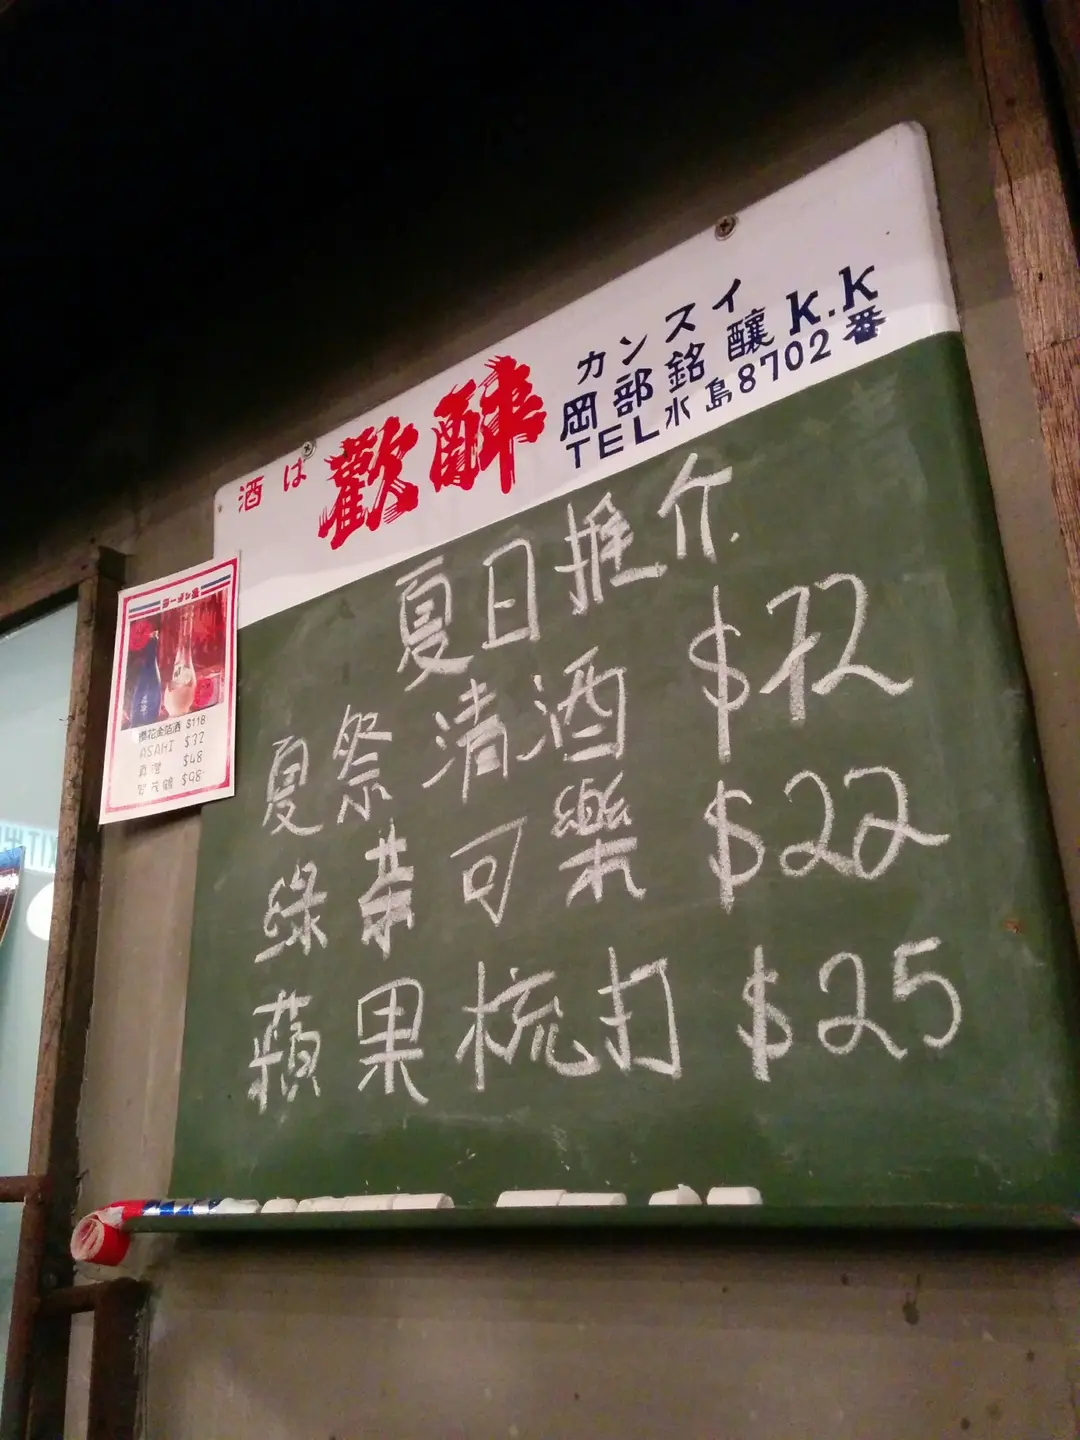 酒は 歡酔
カンスイ
岡部銘釀 K.K
TEL水島8702番
夏日推介
夏祭清酒 $72
綠茶可樂 $22
蘋果梳打 $25
ラーメン屋
櫻花金箔酒 $118
ASAHI $32
$48
賀茂鶴 $98